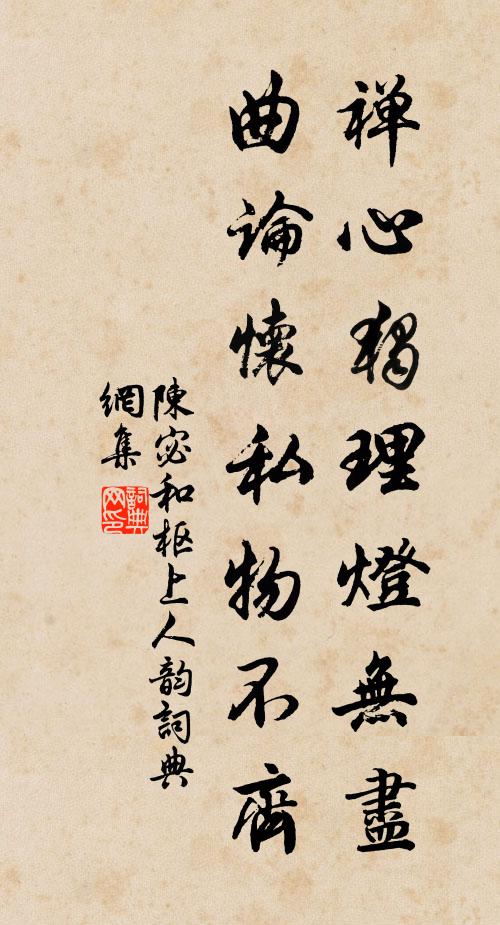 禅心独理燈無盡
曲論懷私物不齊
陳宓和枢上人韵詞典
網集
詞典网印